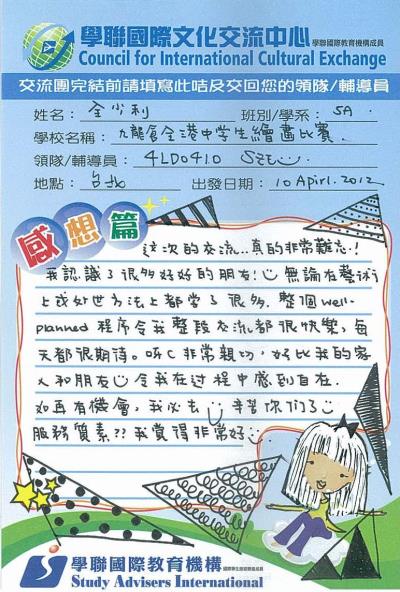 學聯國際文化交流中心 學聯國際教育機構成員
Council for International Cultural Exchange
交流團完結前請填寫此咭及交回您的領隊/輔導員
姓名: 金少利 班別/學系: 5A
學校名稱: 九龍倉全港中學生繪畫比賽
領隊/輔導員: 4LD0410
地點: 台北 出發日期: 10 Apirl. 2012
感想篇
這次的交流...真的非常難忘!
我認識了很多好好的朋友! 無論在藝術
上或处世方法上都學了很多. 整個well-
planned 程序令我整段交流都很快樂, 每
天都很期待。 非常親切, 好比我的家
人和朋友 令我在过程中感到自在.
如再有機會, 我必去 辛苦你們了
服務質素?? 我覺得非常好
學聯國際教育機構
Study Advisers International